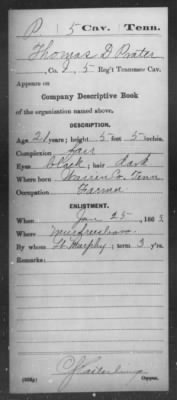 P 5 Cav. Tenn.
Thomas D Prater
, Co. , 5 Reg't Tennessee Cav.
Appears on
Company Descriptive Book
of the organization named above.
DESCRIPTION.
Age 21 years; height 5 feet 5 inches.
Complexion fair
Eyes black; hair dark
Where born Warren Co. Tenn
Occupation Farmer
ENLISTMENT.
When 25, 1863.
Where Murfreesboro
By whom Lt. Murphy; term 3 y'rs.
Remarks:
Copyist.